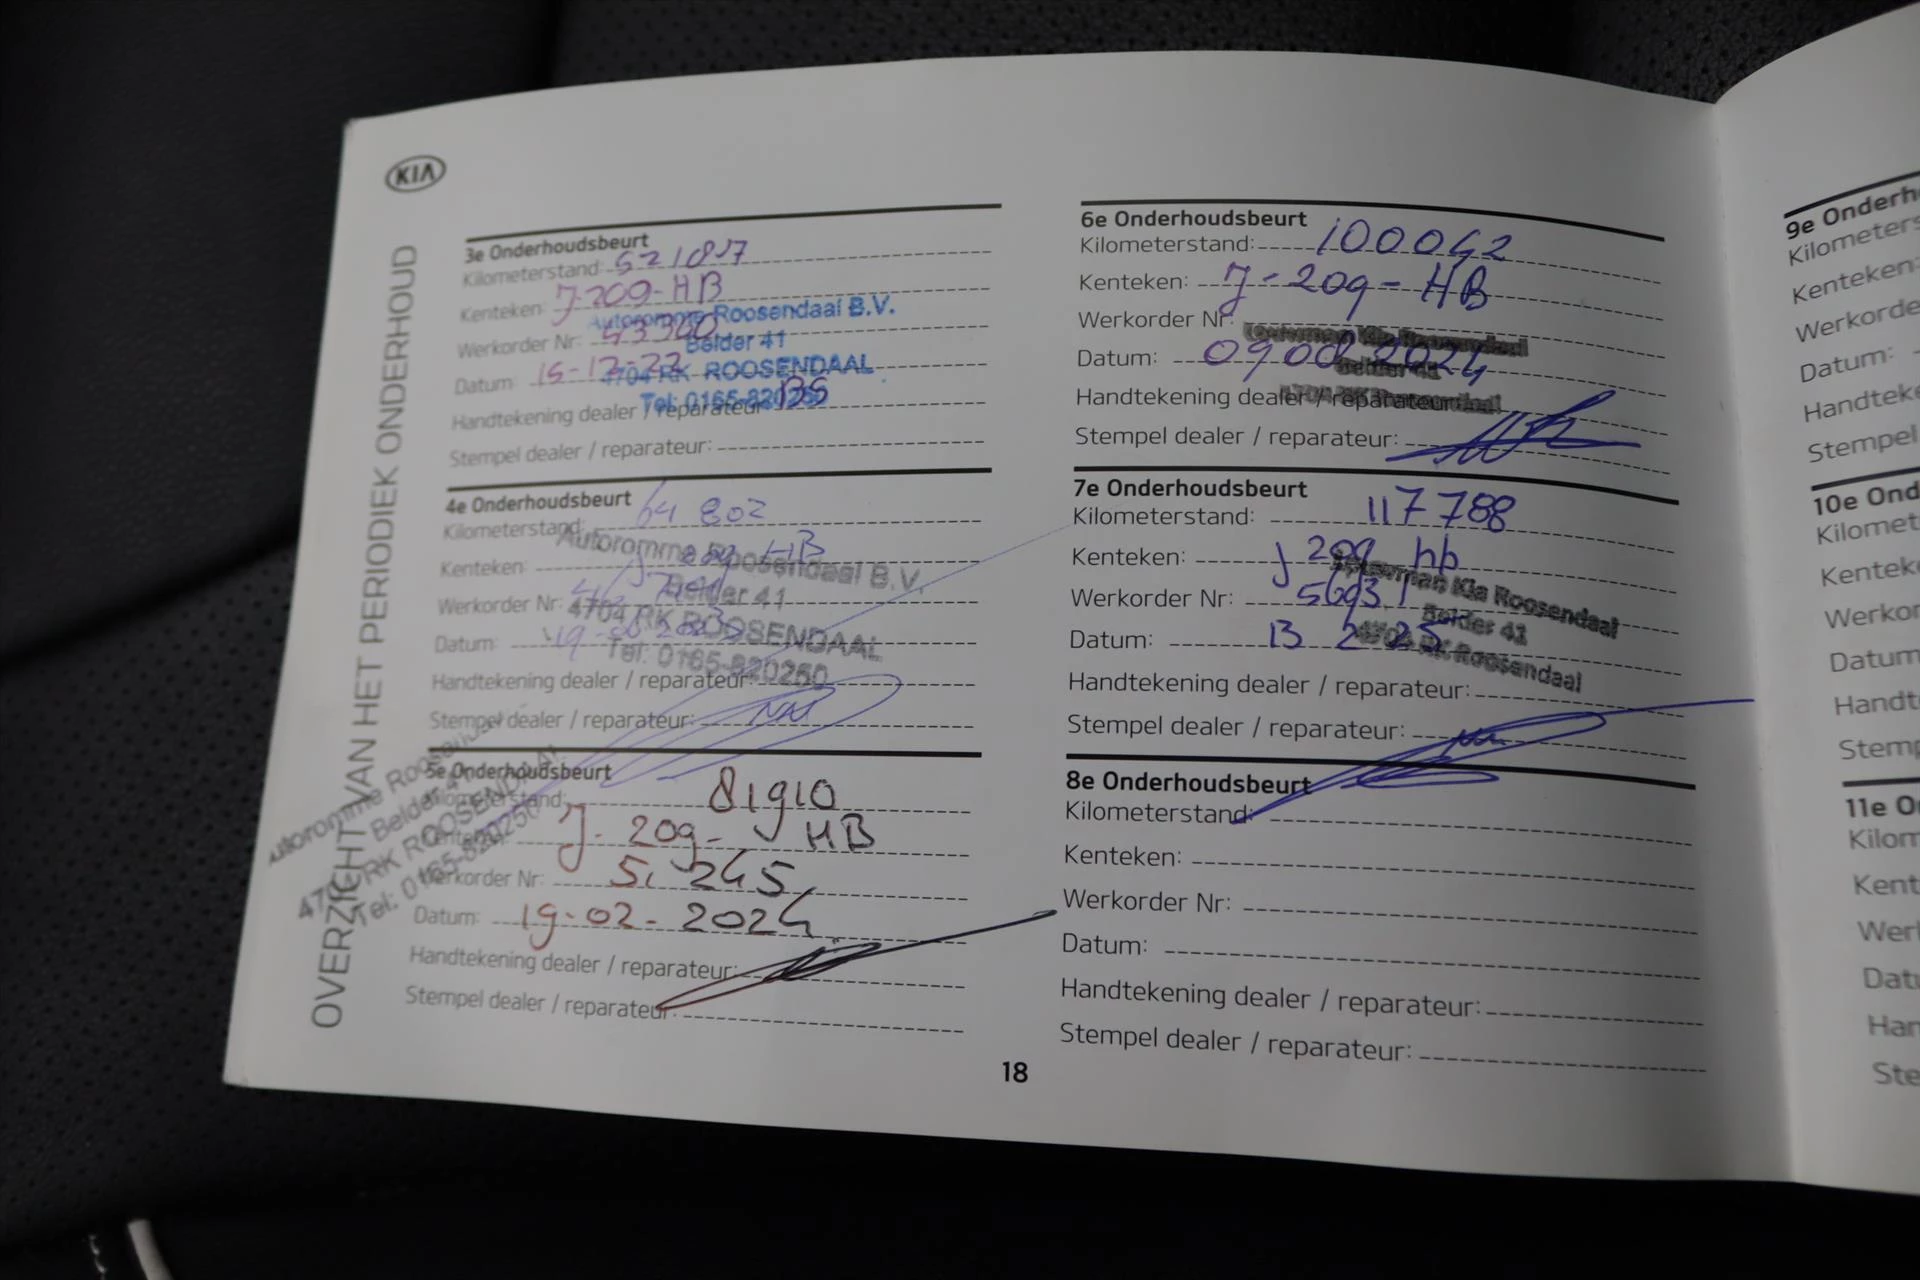 KIA
OVERZICHT VAN HET PERIODIEK ONDERHOUD
3e Onderhoudsbeurt
Kilometerstand:
Kenteken: J-209-HB
Werkorder Nr:
Datum: 15-12-22
Handtekening dealer / reparateur
Stempel dealer / reparateur:
Autoromme Roosendaal B.V.
Belder 41
4704 RK ROOSENDAAL
Tel: 0165-820250
4e Onderhoudsbeurt
Kilometerstand: 64 802
Kenteken: J 209 HB
Werkorder Nr:
Datum:
Handtekening dealer / reparateur:
Stempel dealer / reparateur:
Autoromme Roosendaal B.V.
Belder 41
4704 RK ROOSENDAAL
Tel: 0165-820250
5e Onderhoudsbeurt
Kilometerstand: 81910
Kenteken: J-209-HB
Werkorder Nr: 51245
Datum: 19-02-2024
Handtekening dealer / reparateur:
Stempel dealer / reparateur:
Autoromme Roosendaal
Belder 41
4704 RK ROOSENDAAL
Tel: 0165-820250
6e Onderhoudsbeurt
Kilometerstand: 100042
Kenteken: J-209-HB
Werkorder Nr:
Datum: 09 08 2024
Handtekening dealer / reparateur
Stempel dealer / reparateur:
Kia Roosendaal
Belder 41
4704 RK Roosendaal
7e Onderhoudsbeurt
Kilometerstand: 117 788
Kenteken: J 209 hb
Werkorder Nr: 56931
Datum: 13 2 25
Handtekening dealer / reparateur:
Stempel dealer / reparateur:
Kia Roosendaal
Belder 41
4704 RK Roosendaal
8e Onderhoudsbeurt
Kilometerstand:
Kenteken:
Werkorder Nr:
Datum:
Handtekening dealer / reparateur:
Stempel dealer / reparateur:
18
9e Onderh
Kilometers
Kenteken:
Werkorde
Datum:
Handteke
Stempel
10e Ond
Kilomet
Kentek
Werkor
Datum
Handt
Stemp
11e O
Kilom
Kent
Werl
Dat
Har
Ste